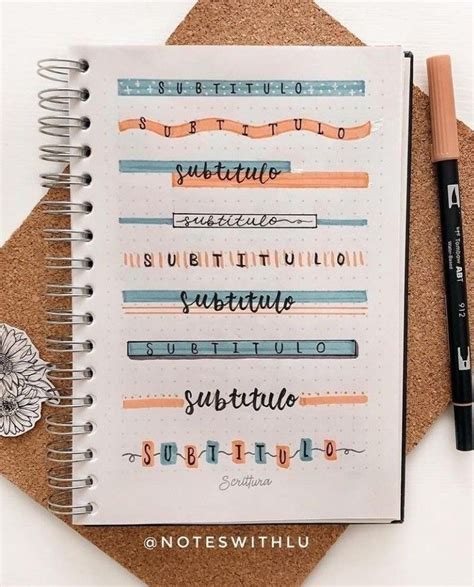 SUBTITULO
SUBTITULO
subtitulo
subtitulo
SUBTITULO
subtitulo
SUBTITULO
subtitulo
SUBTITULO
Scrittura
Tombow ABT
Water-Based
912
@NOTESWITHLU